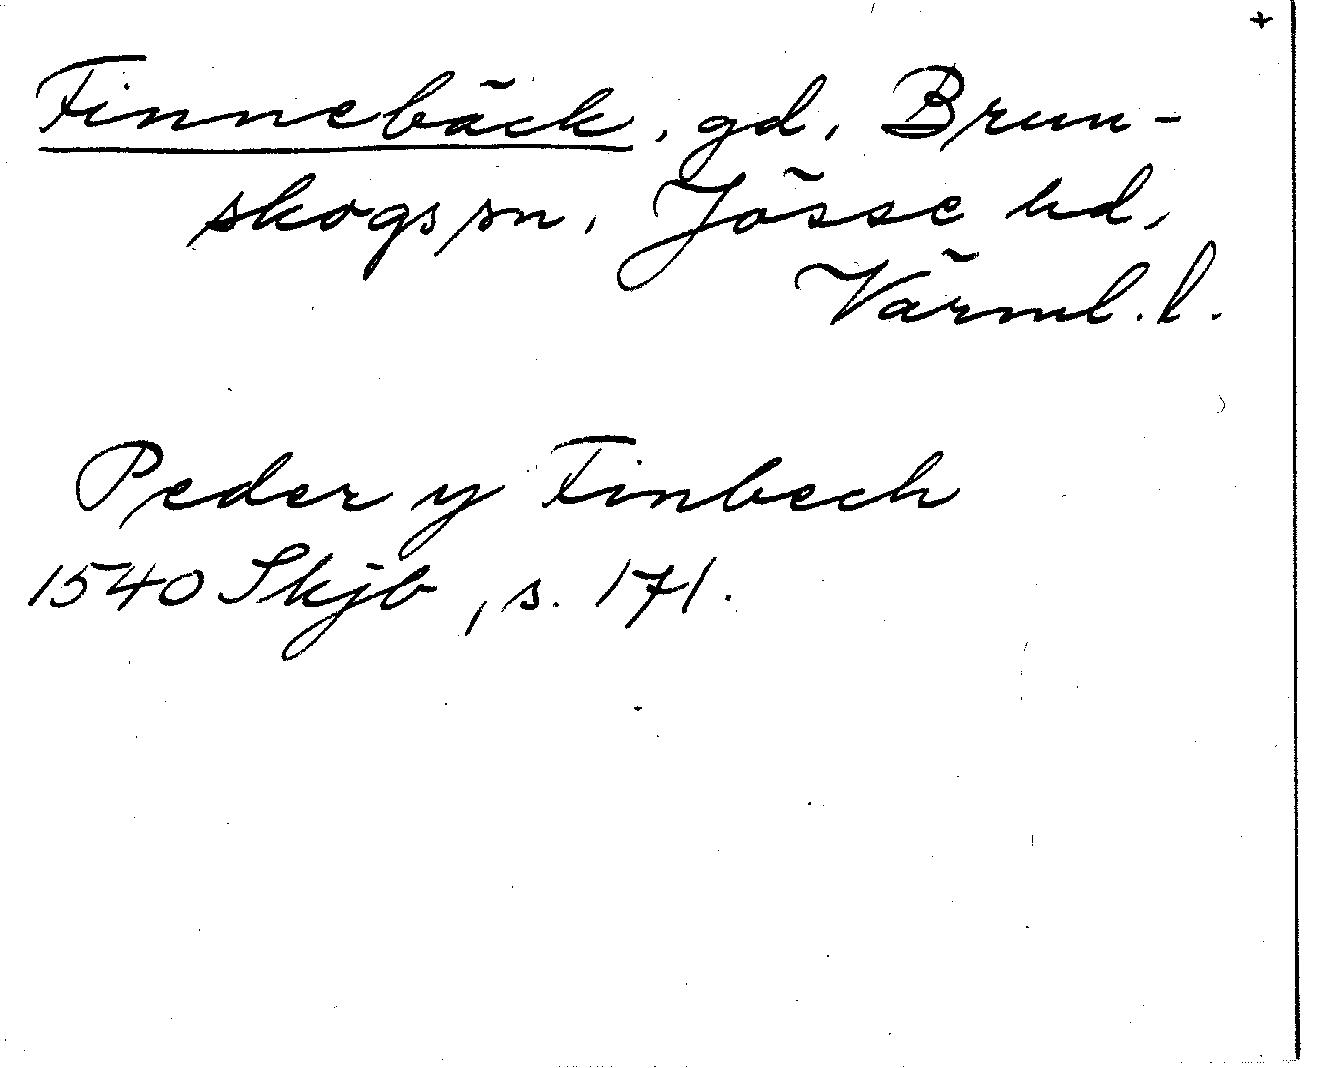 +
Finnebäck, gd, Brun-
skogs sn, Jösse hd,
Värml. l.
Peder y Finbech
1540 Skjb, s. 171.